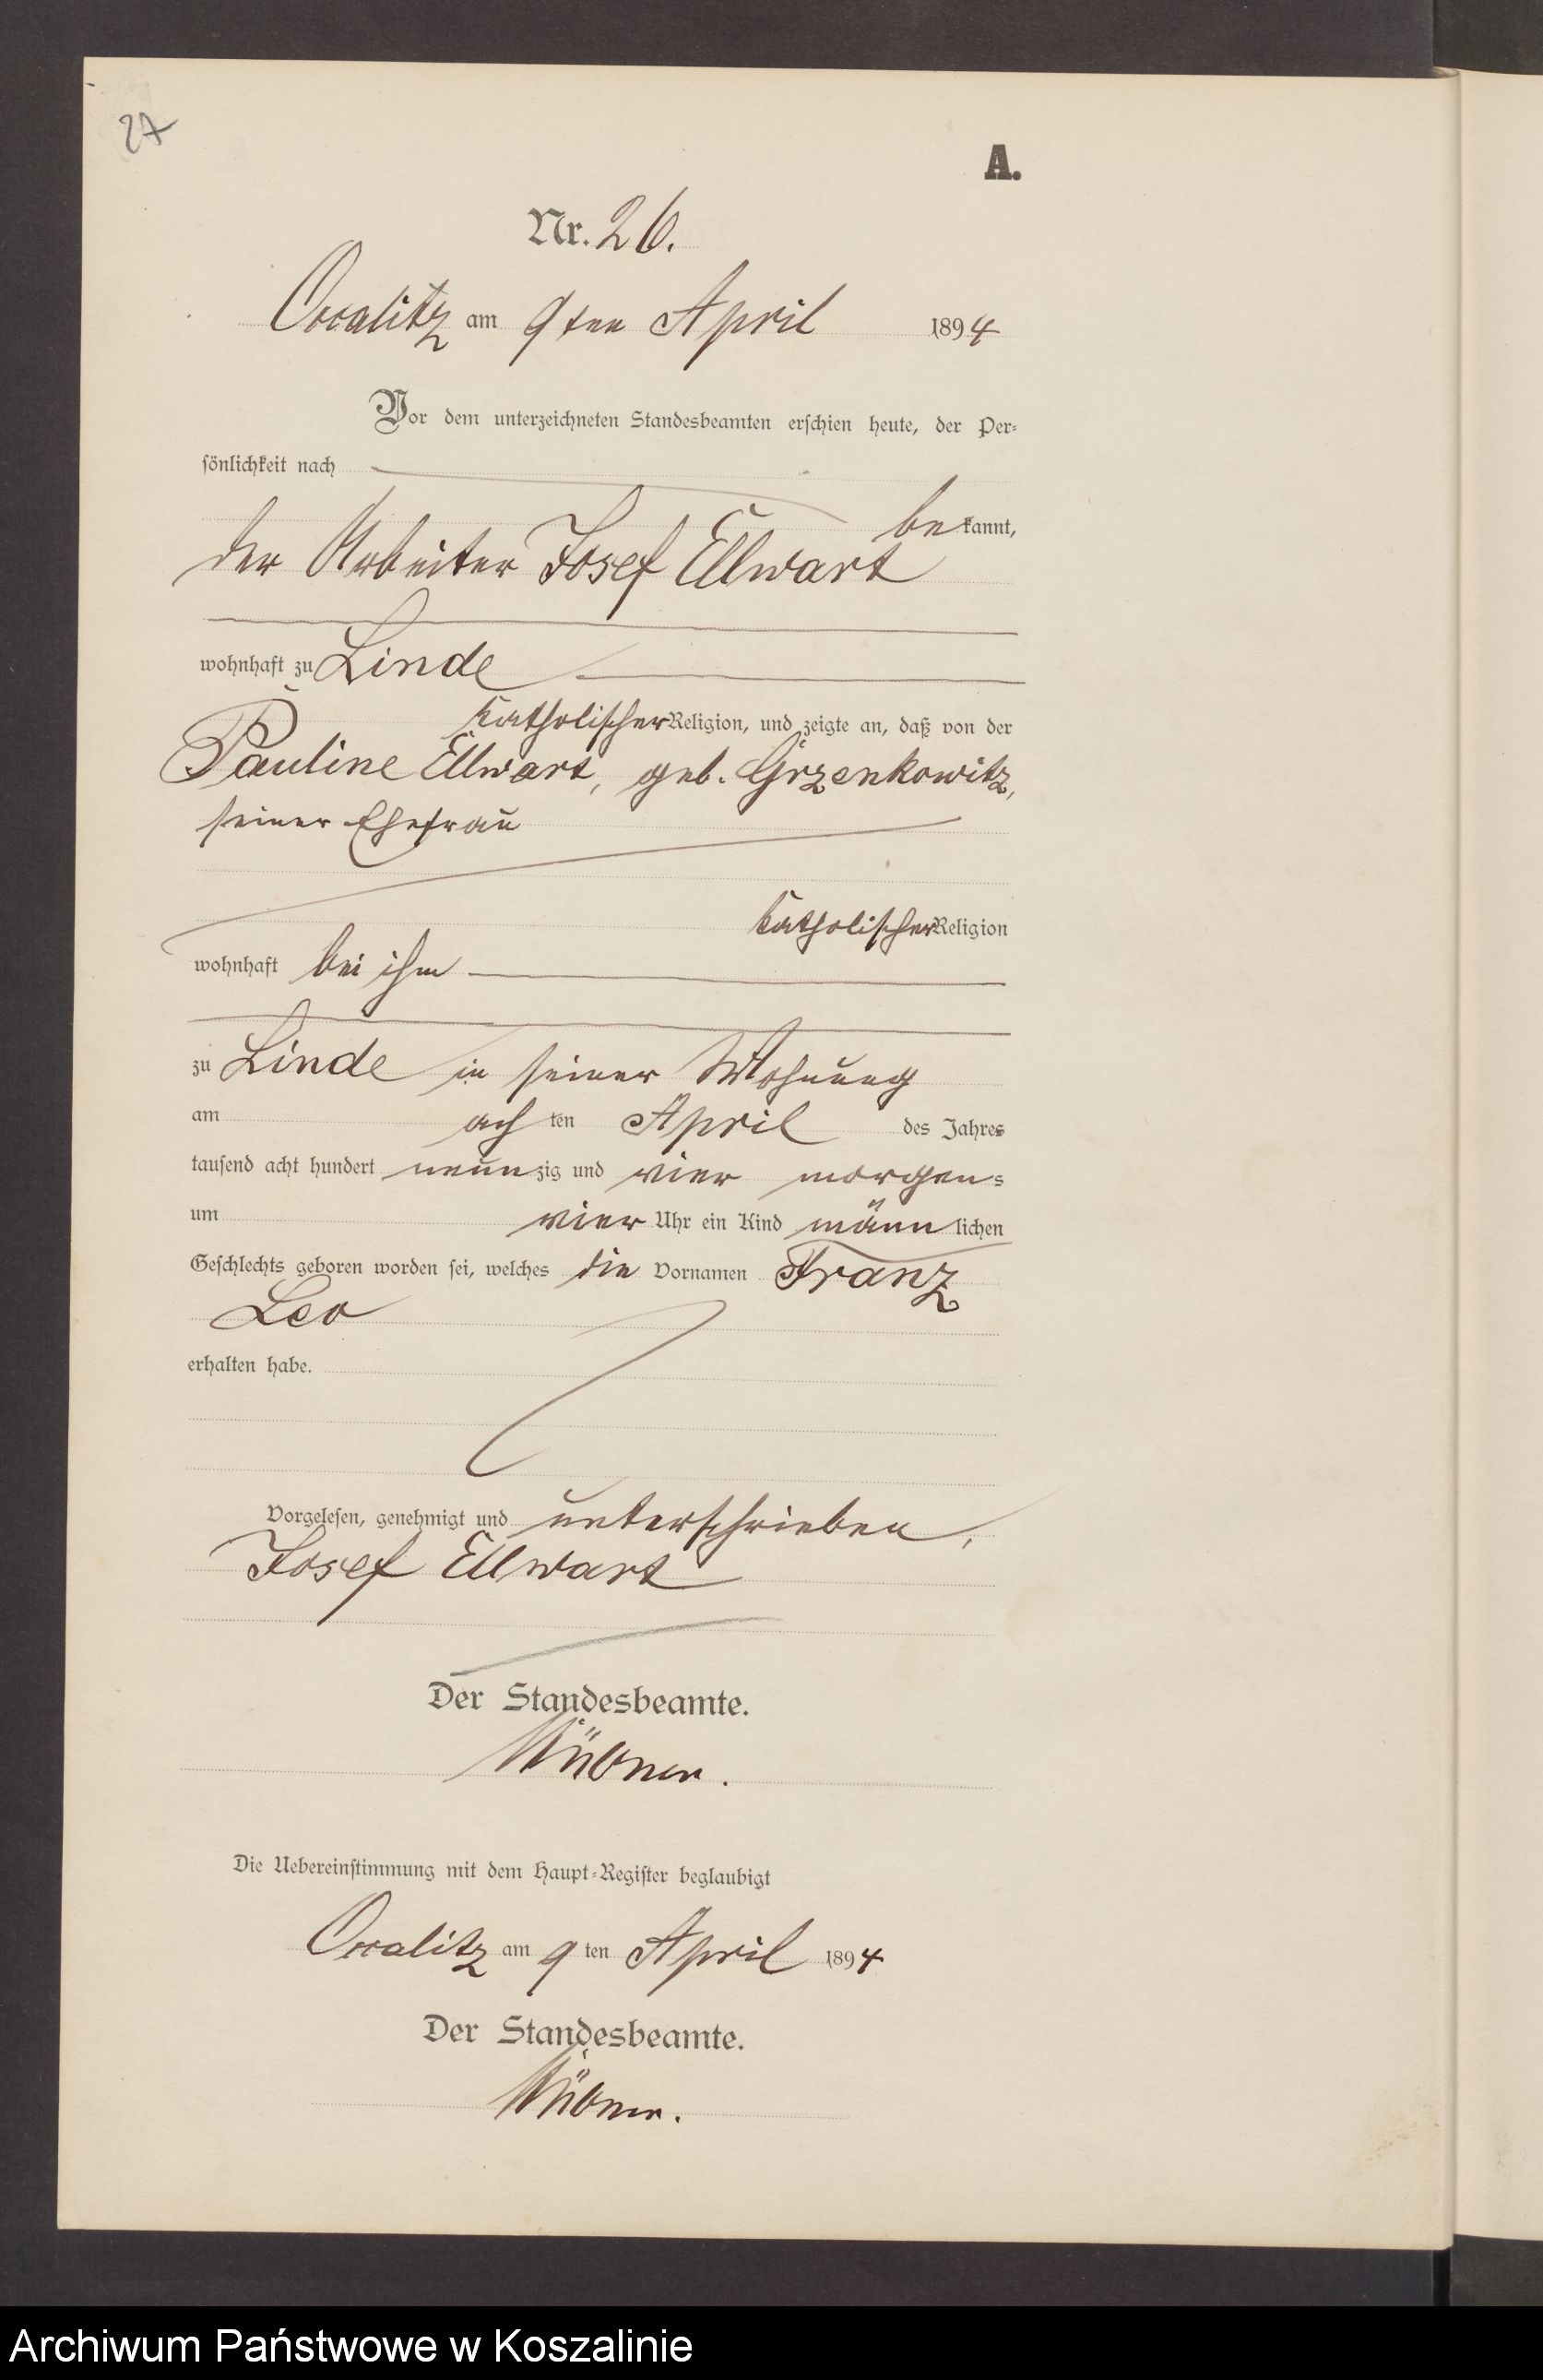 27
A.
Nr. 26.
Occalitz am 9ten April 1894
Vor dem unterzeichneten Standesbeamten erschien heute, der Per-
sönlichkeit nach
bekannt,
der Arbeiter Josef Ellwart
wohnhaft zu Linde
katholischer Religion, und zeigte an, daß von der
Pauline Ellwart, geb. Grzenkowitz,
seiner Ehefrau
katholischer Religion
wohnhaft bei ihm
zu Linde in seiner Wohnung
am achten April des Jahres
tausend acht hundert neunzig und vier morgen-
um vier Uhr ein Kind männlichen
Geschlechts geboren worden sei, welches die Vornamen Franz
Leo
erhalten habe.
Vorgelesen, genehmigt und unterschrieben,
Josef Ellwart
Der Standesbeamte.
Die Uebereinstimmung mit dem Haupt-Register beglaubigt
Occalitz am 9ten April 1894
Der Standesbeamte.
Archiwum Państwowe w Koszalinie